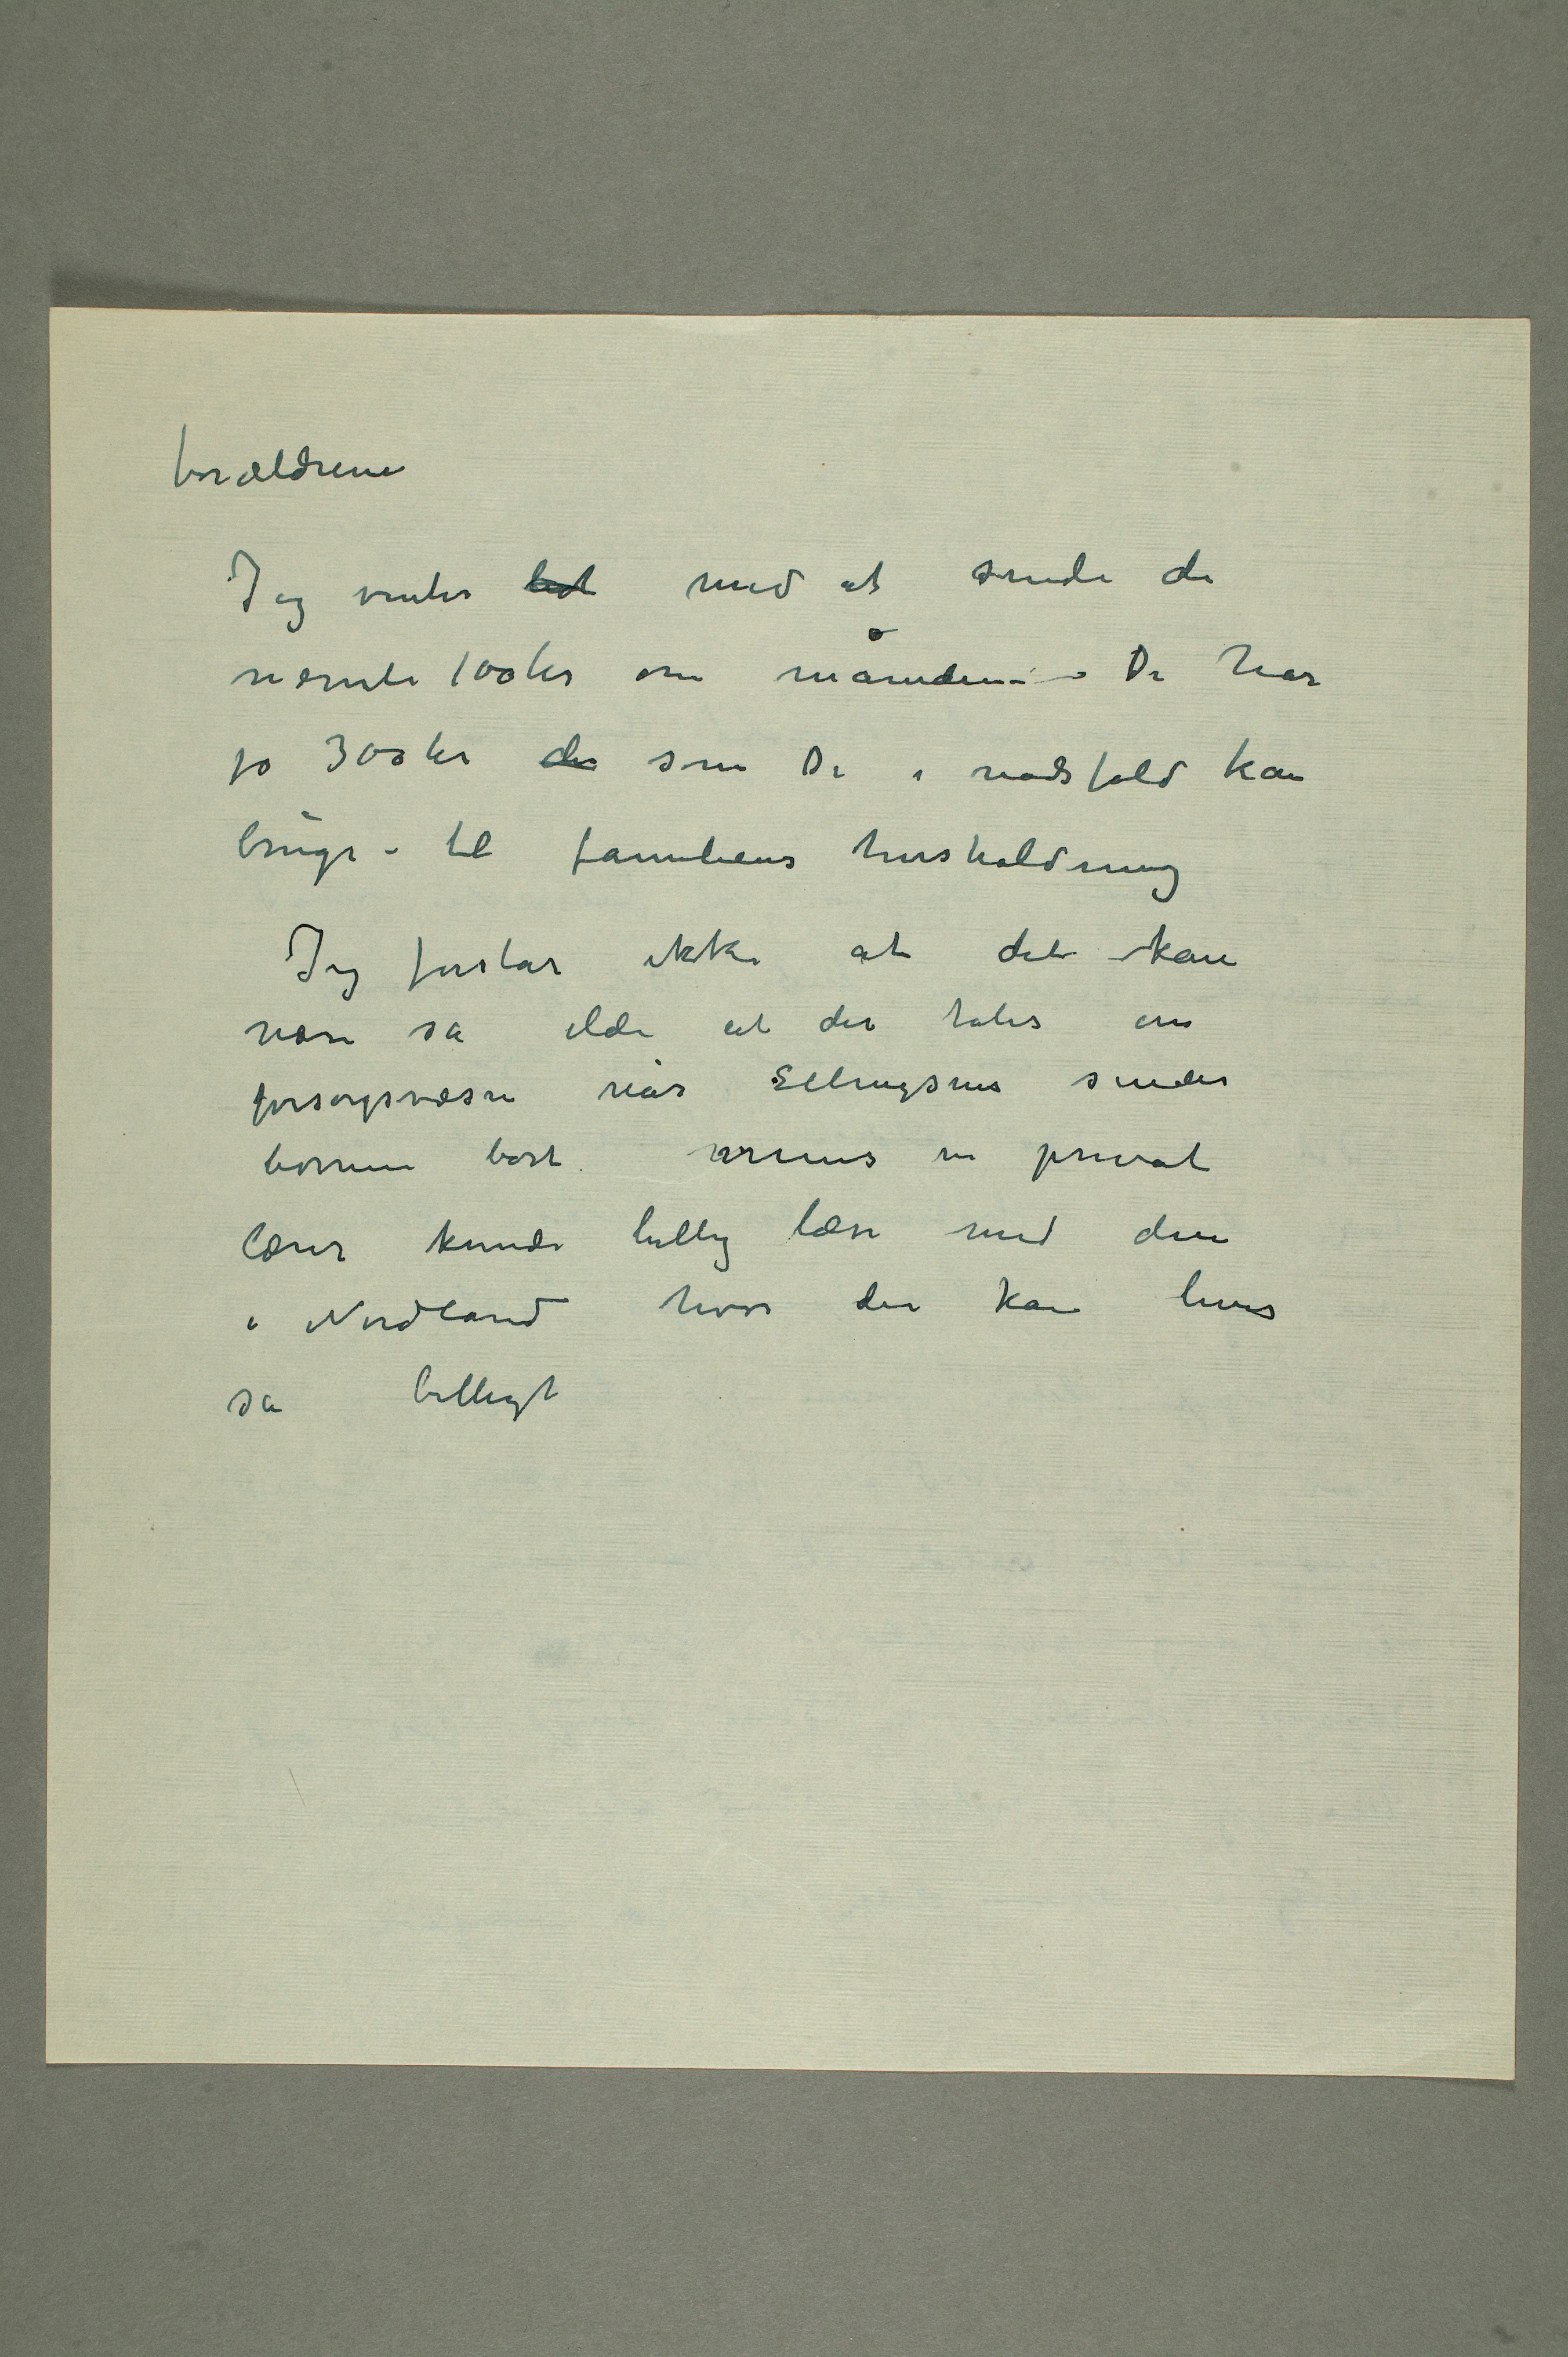 forældrene
Jeg venter lidt med at sende de
nævnte 100 kr om måneden – De har
jo 300 kr der som De i nødsfald kan
bruge – til familiens husholdning
Jeg forstår ikke at det kan
være så ilde at der tales om
forsorgsvæsen når Ellingsens sender
børnene bort. mens en privat
lærer kunde billig læse med dem
i Nordland hvor der kan leves
så billigt